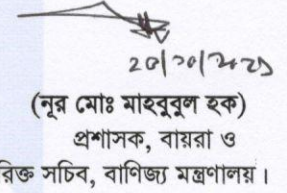 (নূর মোঃ মাহবুবুল হক)
প্রশাসক, বায়রা ও
রিক্ত সচিব, বাণিজ্য মন্ত্রণালয়।